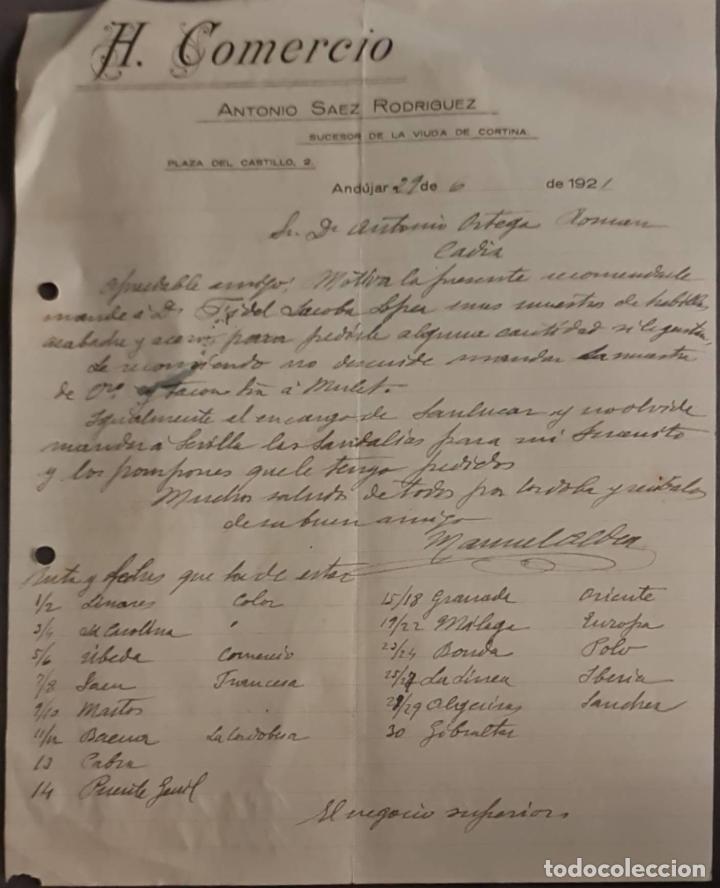 H. Comercio
ANTONIO SAEZ RODRIGUEZ
SUCESOR DE LA VIUDA DE CORTINA.
PLAZA DEL CASTILLO, 2.
Andújar 29 de 6 de 1921
Sr. Dn Antonio Ortega Roman
Cadiz
Apreciable amigo: Motiva la presente recomendarle
mande á Dn Fidel Jacoba Lopez unas muestras de hebillas
y acero para pedirle alguna cantidad si le gustan
Le recomiendo no descuide mandar la muestra
de á Mulet.
Igualmente el encargo de Sanlucar y no olvide
mandar á Sevilla las Sandalias para mi Juanito
y los pompones que le tengo pedidos
Muchos saludos de todos por Cordoba y recibalos
de su buen amigo
Manuel
Ruta y fechas que ha de estar
1/2 Linares Color
3/4 La Carolina "
5/6 Ubeda Comercio
7/8 Jaen Francesa
9/10 Martos
11/12 Baena La Cordobesa
13 Cabra
14 Puente Genil
15/18 Granada Oriente
19/22 Málaga Europa
23/24 Ronda Polo
25/27 La Linea Iberia
28/29 Algeciras Sanchez
30 Gibraltar
El negocio superior
todocoleccion
todocoleccion.net